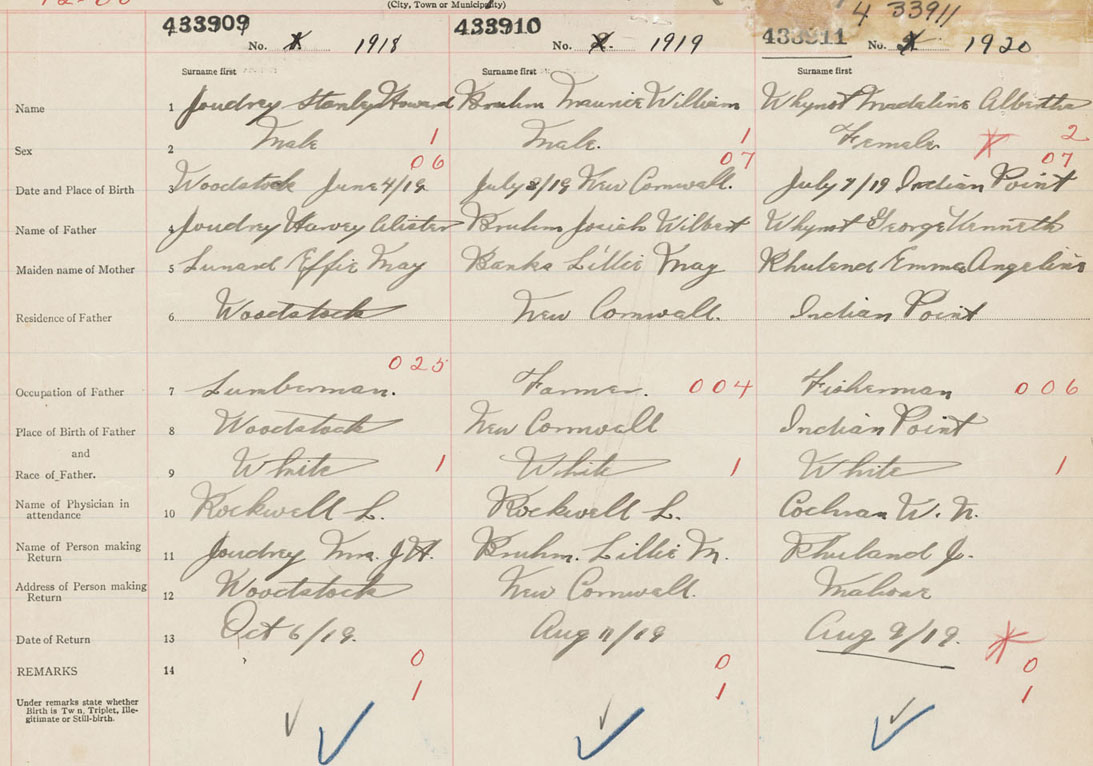 (City, Town or Municipality)
433909 433910 433911 4 33911
No. 1918 No. 1919 No. 1920
Surname first Surname first Surname first
Name 1 Joudrey Stanley Howard Bruhm Maurice William Whynot Madeline Albertha
Sex 2 Male 1 Male. 1 Female 2
06 07 07
Date and Place of Birth 3 Woodstock June 4/19 July 3/19 New Cornwall. July 7/19 Indian Point
Name of Father 4 Joudrey Harvey Alister Bruhm Josiah Wilbert Whynot George Kenneth
Maiden name of Mother 5 Effie May Banks Lillie May Emma Angeline
Residence of Father 6 Woodstock New Cornwall. Indian Point
025
Occupation of Father 7 Lumberman. Farmer. 004 Fisherman 006
Place of Birth of Father 8 Woodstock New Cornwall Indian Point
and
Race of Father. 9 White 1 White 1 White 1
Name of Physician in
attendance 10 Rockwell L. Rockwell L. Cochran W. N.
Name of Person making
Return 11 Joudrey Mrs. J H. Bruhm. Lillie M. Rhuland J.
Address of Person making
Return 12 Woodstock New Cornwall.
Date of Return 13 Oct 6/19. Aug 11/19 Aug 9/19.
REMARKS 14 0 0 0
Under remarks state whether
Birth is Tw n, Triplet, Ille-
gitimate or Still-birth.
1 1 1